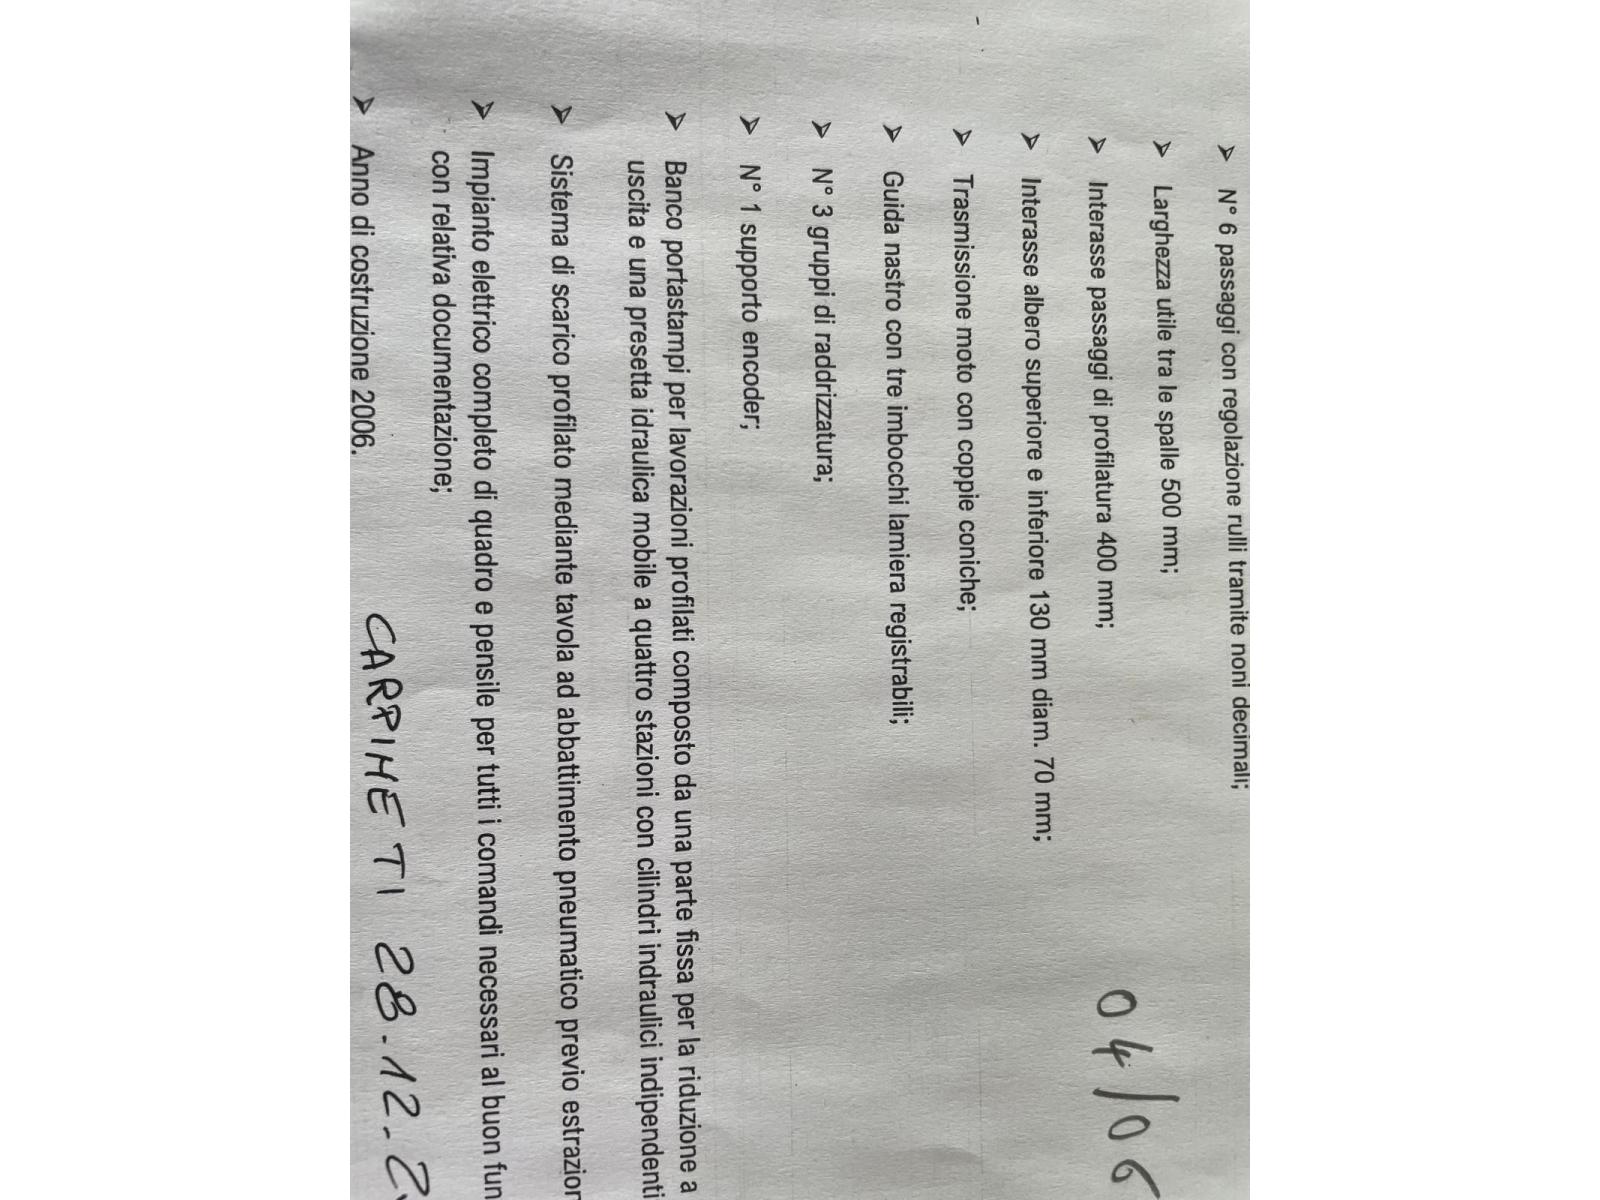 N° 6 passaggi con regolazione rulli tramite noni decimali;
Larghezza utile tra le spalle 500 mm;
Interasse passaggi di profilatura 400 mm;
04/06
Interasse albero superiore e inferiore 130 mm diam. 70 mm;
Trasmissione moto con coppie coniche;
Guida nastro con tre imbocchi lamiera registrabili;
N° 3 gruppi di raddrizzatura;
N° 1 supporto encoder;
Banco portastampi per lavorazioni profilati composto da una parte fissa per la riduzione a
uscita e una presetta idraulica mobile a quattro stazioni con cilindri indraulici indipendenti
Sistema di scarico profilato mediante tavola ad abbattimento pneumatico previo
Impianto elettrico completo di quadro e pensile per tutti i comandi necessari al buon
con relativa documentazione;
Anno di costruzione 2006.
CARPINETI 28.12.